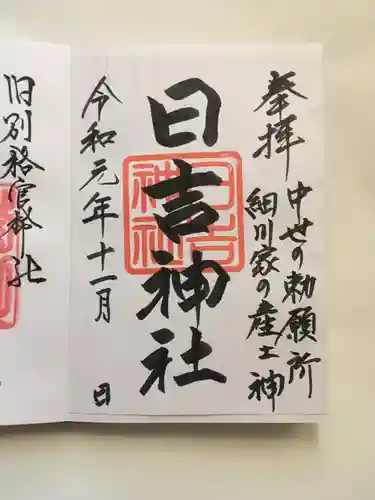 奉拝
中世の勅願所
細川家の産土神
日吉神社
日吉
神社
令和元年十一月 日
旧別格官幣社